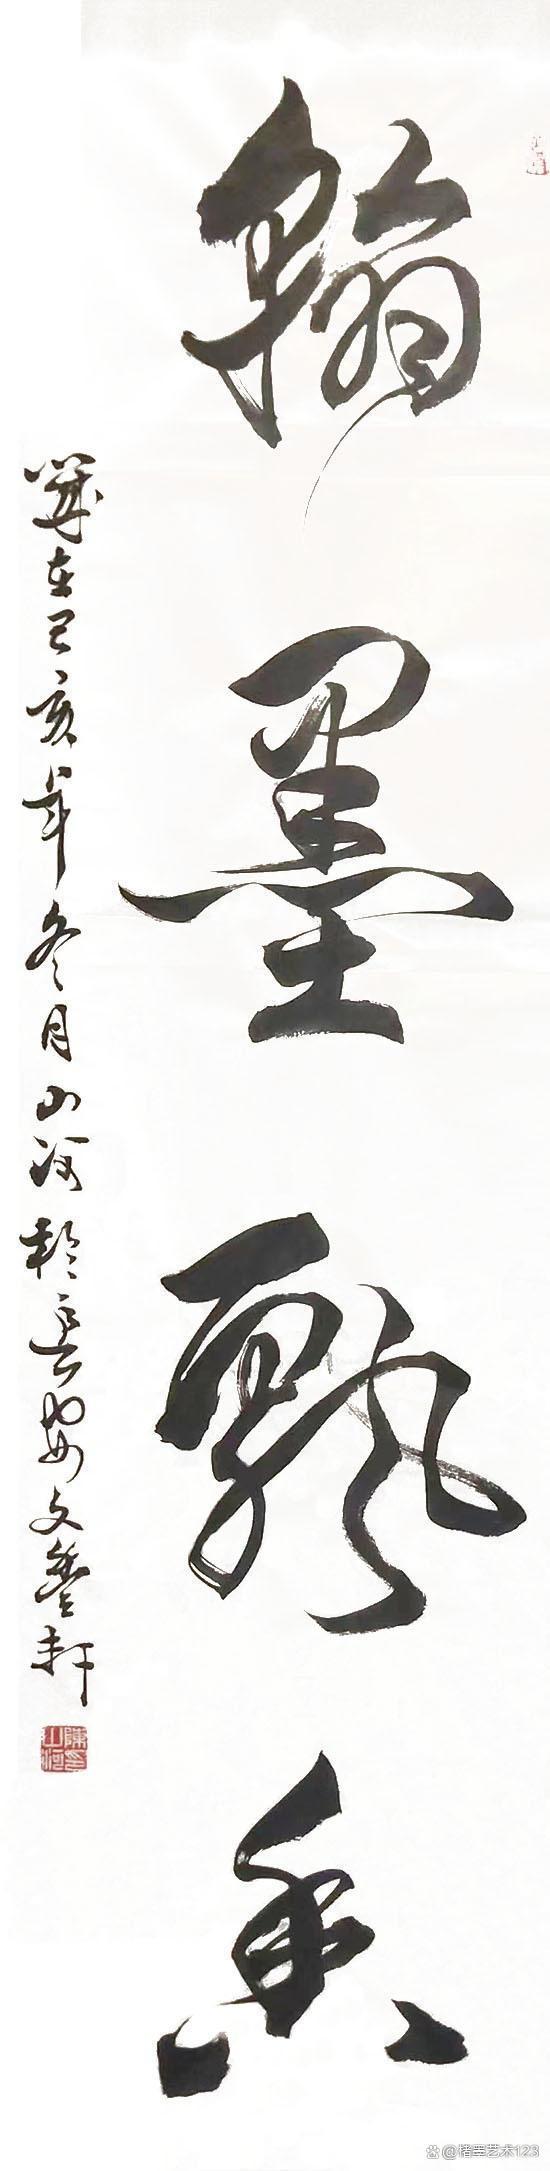 翰墨飘香
岁在己亥年冬月山河于长安文香轩
陈山河印
@楮墨艺术123